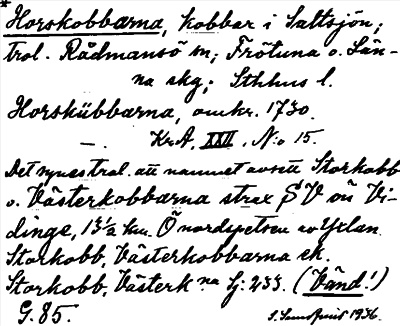 * Horskobbarna, kobbar i Saltsjön;
trol. Rådmansö sn; Frötuna o. Län-
na skg; Sthlms l.
Horskübbarna, omkr. 1730.
—. KrA. XXII, N:o 15.
Det synes trol. att namnet avsett Storkobb
o. Västerkobbarna strax SV om Vi-
dinge, 1 3/2 km. Ö nordspetsen av Yxlan.
Storkobb, Västerkobbarna ek.
Storkobb, Västerk na Sj: 233. (Vänd!)
G. 85. 1936.